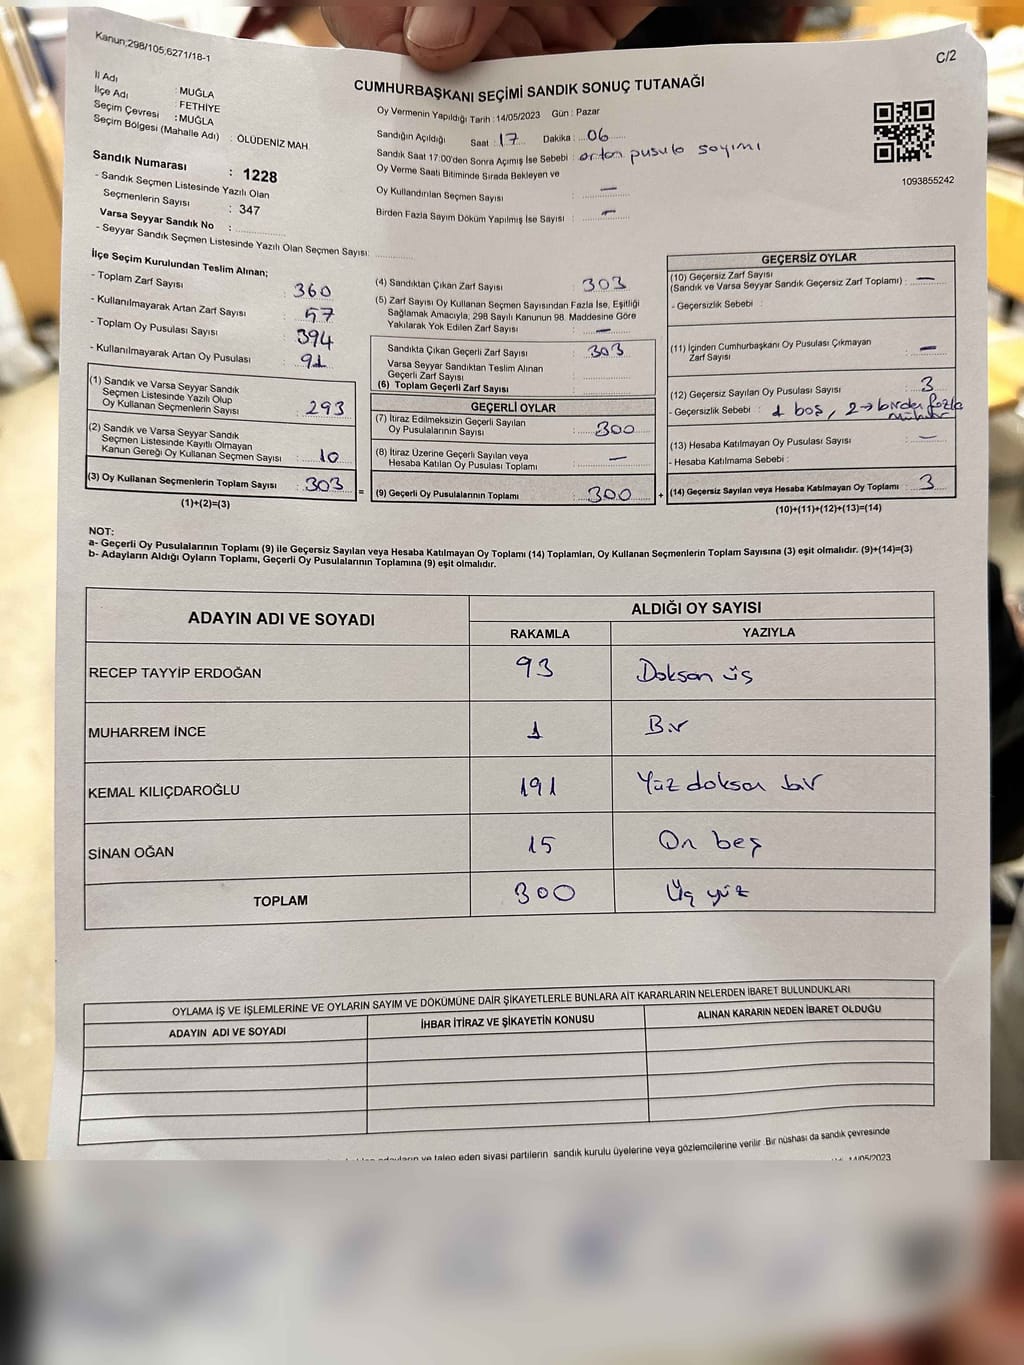 Kanun;298/105,6271/18-1
C/2
CUMHURBAŞKANI SEÇİMİ SANDIK SONUÇ TUTANAĞI
İl Adı : MUĞLA
İlçe Adı : FETHİYE
Seçim Çevresi : MUĞLA
Seçim Bölgesi (Mahalle Adı) : ÖLÜDENİZ MAH.
Sandık Numarası : 1228
- Sandık Seçmen Listesinde Yazılı Olan
Seçmenlerin Sayısı : 347
Varsa Seyyar Sandık No :
- Seyyar Sandık Seçmen Listesinde Yazılı Olan Seçmen Sayısı:
Oy Vermenin Yapıldığı Tarih : 14/05/2023 Gün : Pazar
Sandığın Açıldığı Saat : 17 Dakika : 06
Sandık Saat 17:00'den Sonra Açımış İse Sebebi : artan pusula sayımı
Oy Verme Saati Bitiminde Sırada Bekleyen ve
Oy Kullandırılan Seçmen Sayısı : —
Birden Fazla Sayım Döküm Yapılmış İse Sayısı : —
1093855242
İlçe Seçim Kurulundan Teslim Alınan;
- Toplam Zarf Sayısı : 360
- Kullanılmayarak Artan Zarf Sayısı : 57
- Toplam Oy Pusulası Sayısı : 394
- Kullanılmayarak Artan Oy Pusulası : 91
(1) Sandık ve Varsa Seyyar Sandık
Seçmen Listesinde Yazılı Olup
Oy Kullanan Seçmenlerin Sayısı : 293
(2) Sandık ve Varsa Seyyar Sandık
Seçmen Listesinde Kayıtlı Olmayan
Kanun Gereği Oy Kullanan Seçmen Sayısı : 10
(3) Oy Kullanan Seçmenlerin Toplam Sayısı : 303
(1)+(2)=(3)
(4) Sandıktan Çıkan Zarf Sayısı : 303
(5) Zarf Sayısı Oy Kullanan Seçmen Sayısından Fazla İse, Eşitliği
Sağlamak Amacıyla, 298 Sayılı Kanunun 98. Maddesine Göre
Yakılarak Yok Edilen Zarf Sayısı : —
Sandıkta Çıkan Geçerli Zarf Sayısı : 303
Varsa Seyyar Sandıktan Teslim Alınan
Geçerli Zarf Sayısı :
(6) Toplam Geçerli Zarf Sayısı
GEÇERLİ OYLAR
(7) İtiraz Edilmeksizin Geçerli Sayılan
Oy Pusulalarının Sayısı : 300
(8) İtiraz Üzerine Geçerli Sayılan veya
Hesaba Katılan Oy Pusulası Toplamı : —
= (9) Geçerli Oy Pusulalarının Toplamı : 300 +
GEÇERSİZ OYLAR
(10) Geçersiz Zarf Sayısı
(Sandık ve Varsa Seyyar Sandık Geçersiz Zarf Toplamı) : —
- Geçersizlik Sebebi :
(11) İçinden Cumhurbaşkanı Oy Pusulası Çıkmayan
Zarf Sayısı : —
(12) Geçersiz Sayılan Oy Pusulası Sayısı : 3
- Geçersizlik Sebebi : 1 boş, 2→birden fazla
mühür
(13) Hesaba Katılmayan Oy Pusulası Sayısı : —
- Hesaba Katılmama Sebebi :
(14) Geçersiz Sayılan veya Hesaba Katılmayan Oy Toplamı : 3
(10)+(11)+(12)+(13)=(14)
NOT:
a- Geçerli Oy Pusulalarının Toplamı (9) ile Geçersiz Sayılan veya Hesaba Katılmayan Oy Toplamı (14) Toplamları, Oy Kullanan Seçmenlerin Toplam Sayısına (3) eşit olmalıdır. (9)+(14)=(3)
b- Adayların Aldığı Oyların Toplamı, Geçerli Oy Pusulalarının Toplamına (9) eşit olmalıdır.
ADAYIN ADI VE SOYADI ALDIĞI OY SAYISI
RAKAMLA YAZIYLA
RECEP TAYYİP ERDOĞAN 93 Doksan üç
MUHARREM İNCE 1 Bir
KEMAL KILIÇDAROĞLU 191 Yüz doksan bir
SİNAN OĞAN 15 On beş
TOPLAM 300 Üç yüz
OYLAMA İŞ VE İŞLEMLERİNE VE OYLARIN SAYIM VE DÖKÜMÜNE DAİR ŞİKAYETLERLE BUNLARA AİT KARARLARIN NELERDEN İBARET BULUNDUKLARI
ADAYIN ADI VE SOYADI İHBAR İTİRAZ VE ŞİKAYETİN KONUSU ALINAN KARARIN NEDEN İBARET OLDUĞU
ve talep eden siyasi partilerin sandık kurulu üyelerine veya gözlemcilerine verilir. Bir nüshası da sandık çevresinde
14/05/2023